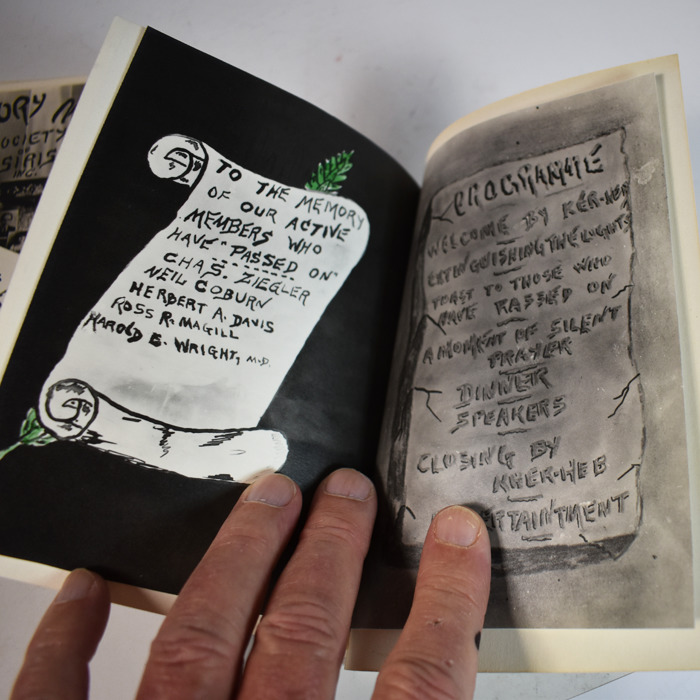 ORY
OCIETY
SIRIS
INC.
TO THE MEMORY
OF OUR ACTIVE
MEMBERS WHO
HAVE "PASSED ON"
CHAS. ZIEGLER
NEIL COBURN
HERBERT A. DAVIS
ROSS R. MAGILL
HAROLD E. WRIGHT, M.D.
PROGRAMME
WELCOME BY KER-HEB
EXTINGUISHING THE LIGHTS
TOAST TO THOSE WHO
HAVE PASSED ON
A MOMENT OF SILENT
PRAYER
DINNER
SPEAKERS
CLOSING BY
KHER-HEB
ERTAINTMENT